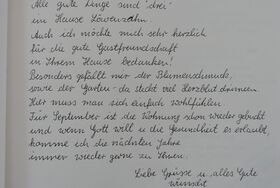 Alle gute Dinge sind "drei"
im Hause Löwenzahn.
Auch ich möchte mich sehr herzlich
für die gute Gastfreundschaft
in Ihrem Hause bedanken!
Besonders gefällt mir der Blumenschmuck,
sowie der Garten - da steckt viel Herzblut drinnen.
Hier muss man sich einfach wohlfühlen.
Für September ist die Wohnung schon wieder gebucht
und wenn Gott will u. die Gesundheit es erlaubt,
komme ich die nächsten Jahre
immer wieder gerne zu Ihnen.
Liebe Grüsse u. alles Gute
wünscht